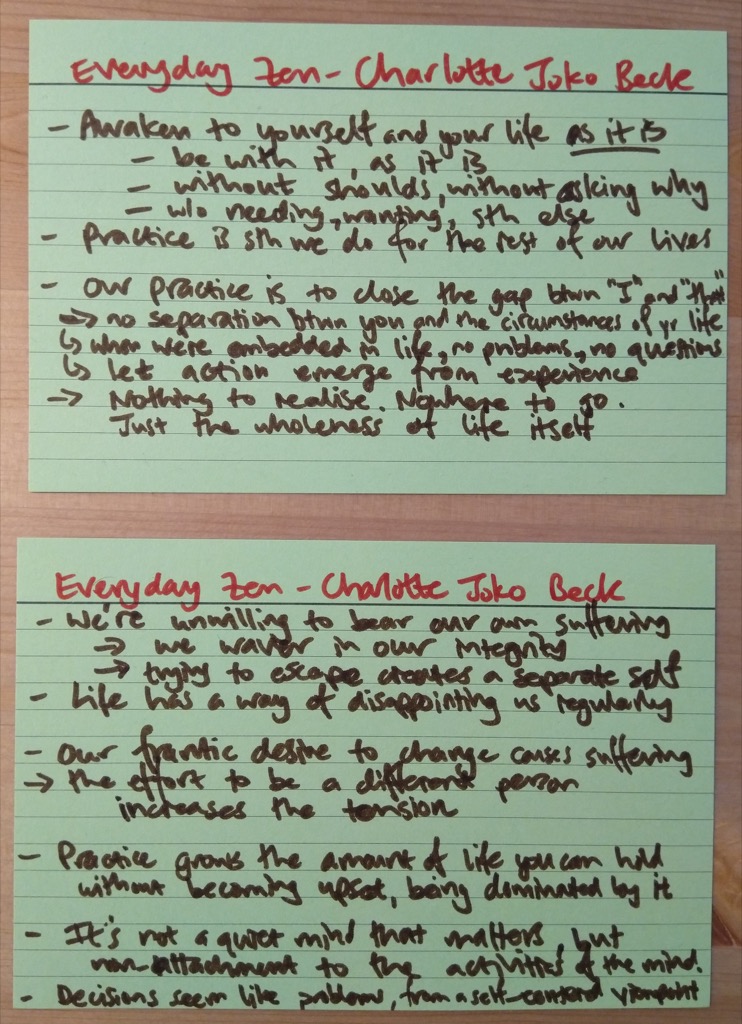 Everyday Zen - Charlotte Joko Beck
- Awaken to yourself and your life as it is
- be with it, as it is
- without shoulds, without asking why
- w/o needing, wanting, sth else
- Practice is sth we do for the rest of our lives
- Our practice is to close the gap btwn "I" and "that"
→ no separation btwn you and the circumstances of yr life
↳ when we're embedded in life, no problems, no questions
↳ let action emerge from experience
→ Nothing to realise. Nowhere to go.
Just the wholeness of life itself
Everyday Zen - Charlotte Joko Beck
- We're unwilling to bear our own suffering
→ we waver in our integrity
→ trying to escape creates a separate self
- Life has a way of disappointing us regularly
- Our frantic desire to change causes suffering
→ the effort to be a different person
increases the tension
- Practice grows the amount of life you can hold
without becoming upset, being dominated by it
- It's not a quiet mind that matters, but
non-attachment to the activities of the mind.
- Decisions seem like problems, from a self-centered viewpoint